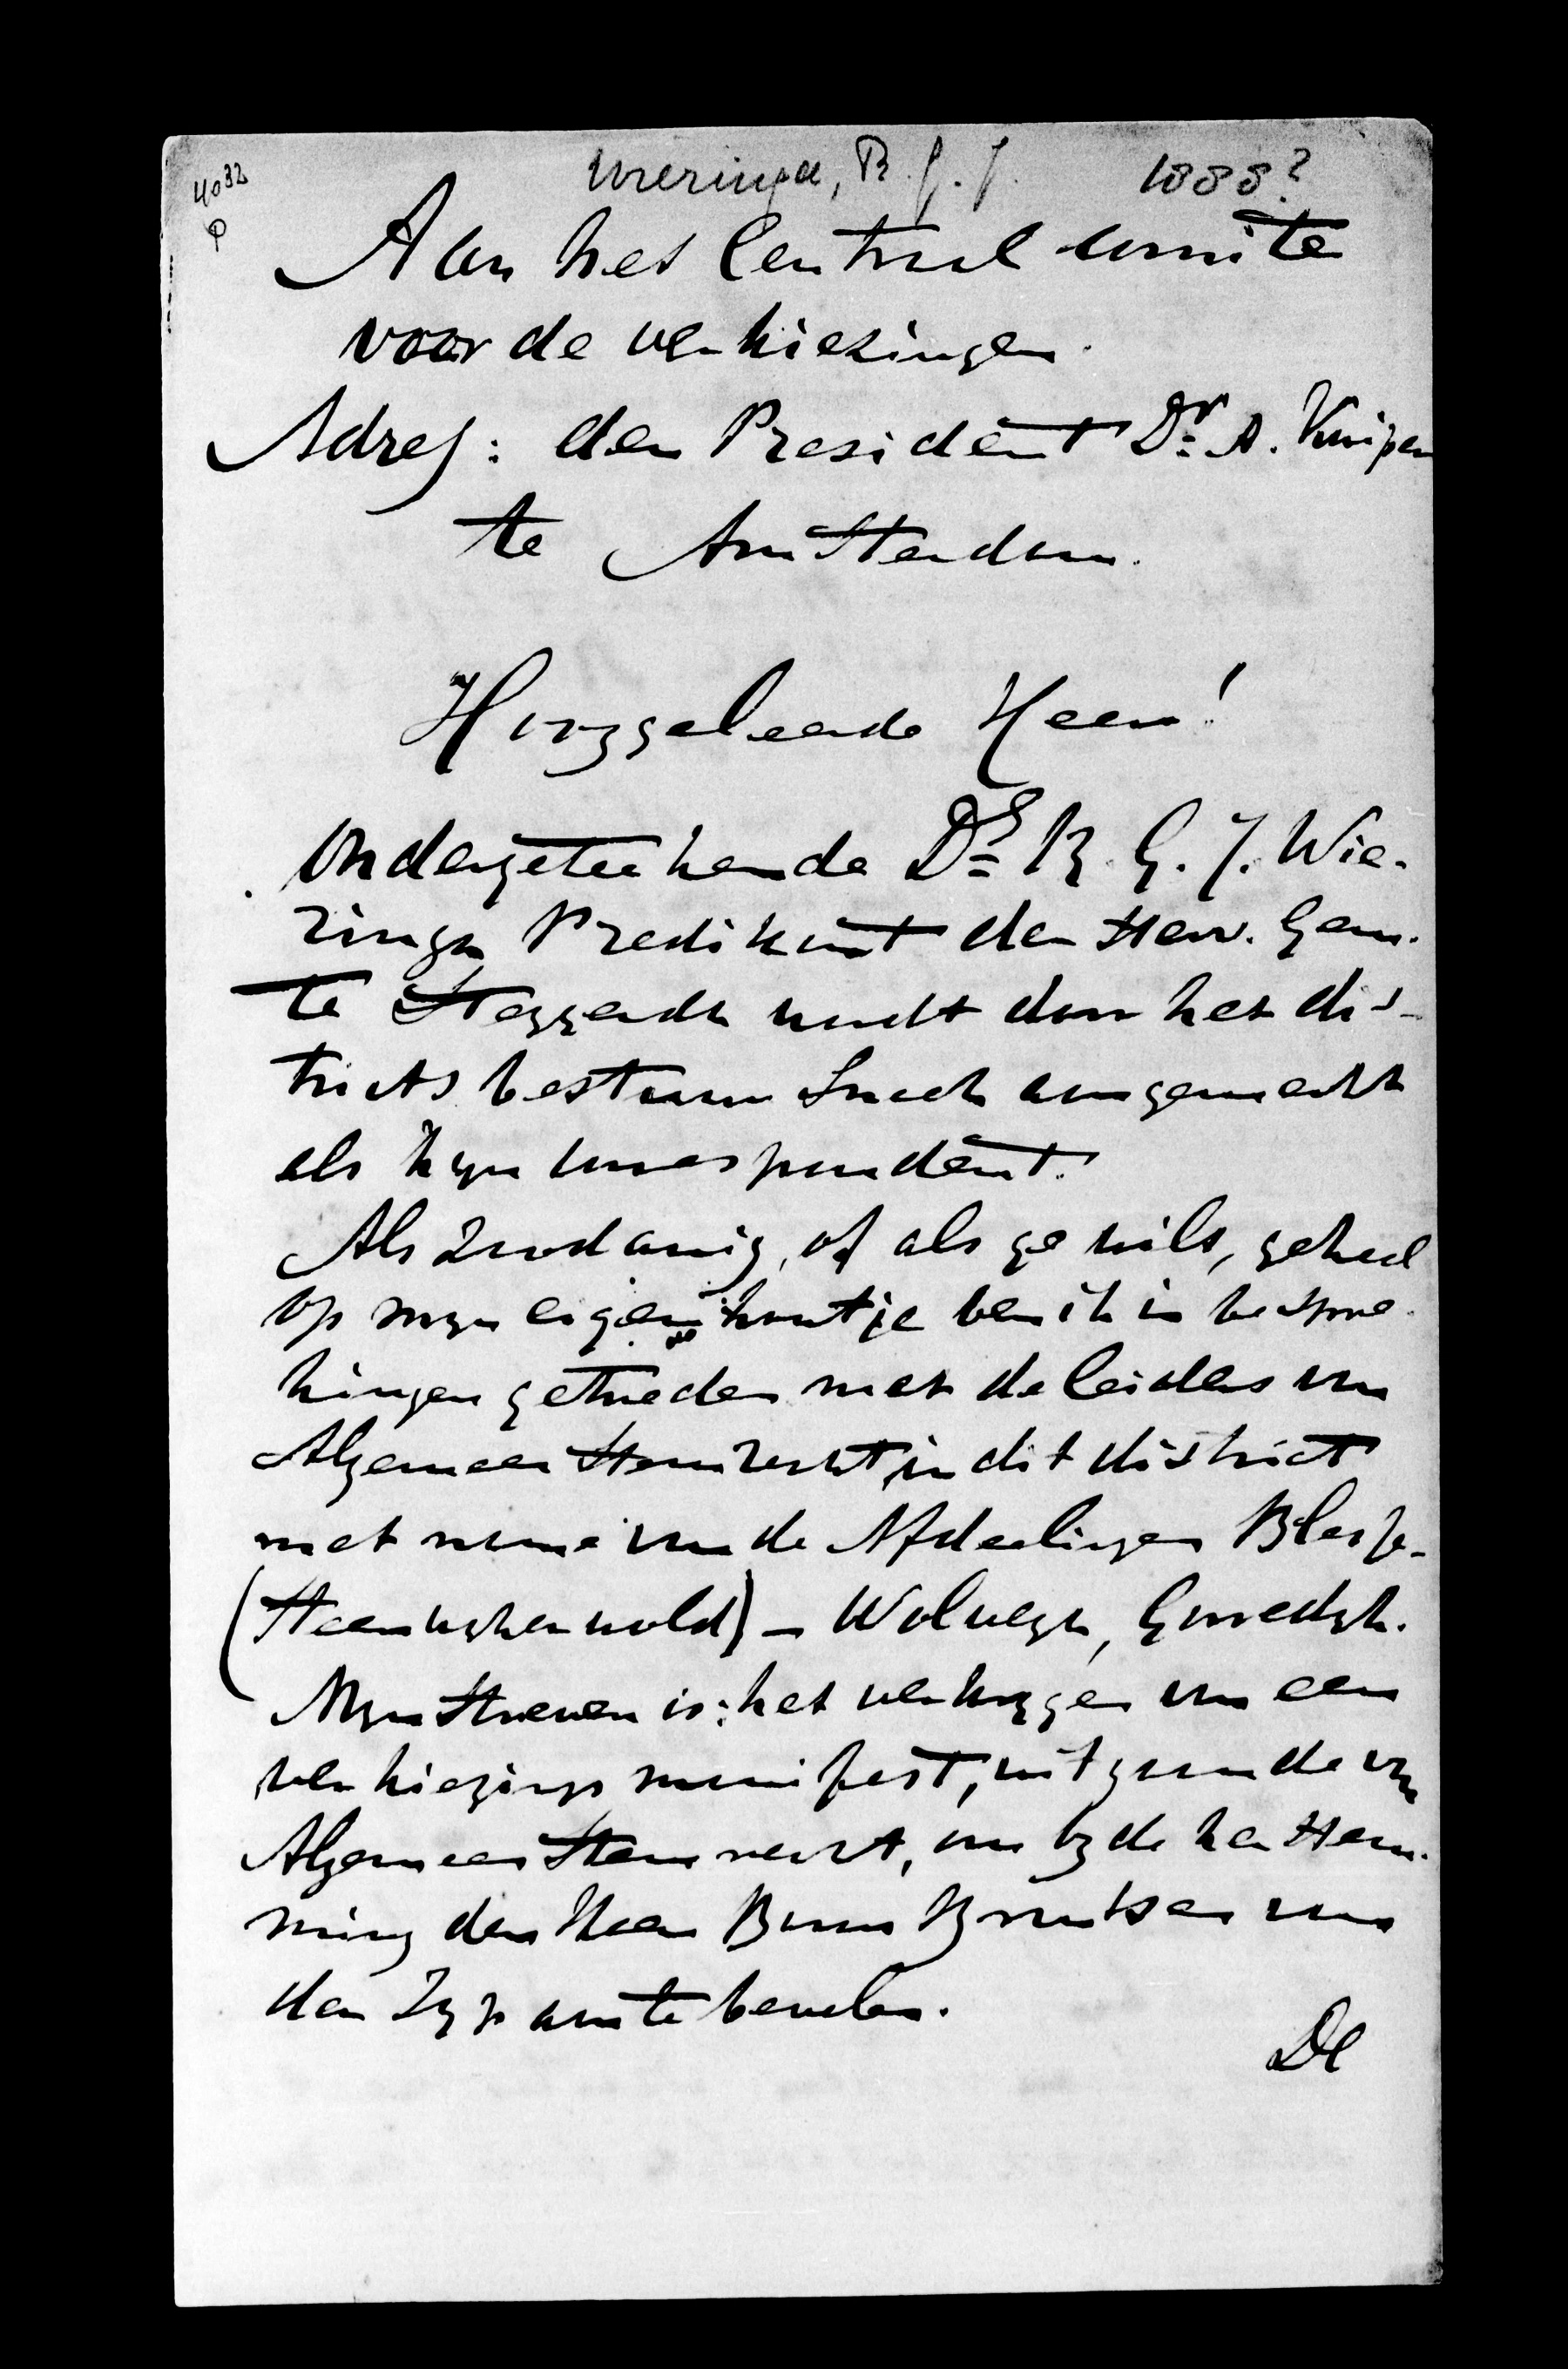 4032
Wieringa, B. G. J. 1888?
Aan het Centraal comité
voor de verkiezingen.
Adres: den President Dr. A. Kuiper
te Amsterdam.
Hooggeleerde Heer!
Ondergeteekende Ds B. G. J. Wie-
ringa Predikant der Herv. Gem.
te Steggerda werdt door het dis-
tricts bestuur Sneek aangemerkt
als zijn correspondent.
Als zoodanig, of als ge wilt, geheel
op mijn eigen houtje ben ik in bespre-
kingen getreden met de leiders van
Algemeen Stemrecht, in dit district
met name van de Afdeelingen Blesse-
(Steenwykerwold) - Wolvega, Gorredyk.
Mijn streven is: het verkrygen van een
verkiezings manifest, uitgaande van
Algemeen Stemrecht, om by de herstem-
ming den Heer Baron van
der Zyp aan te bevelen.
De